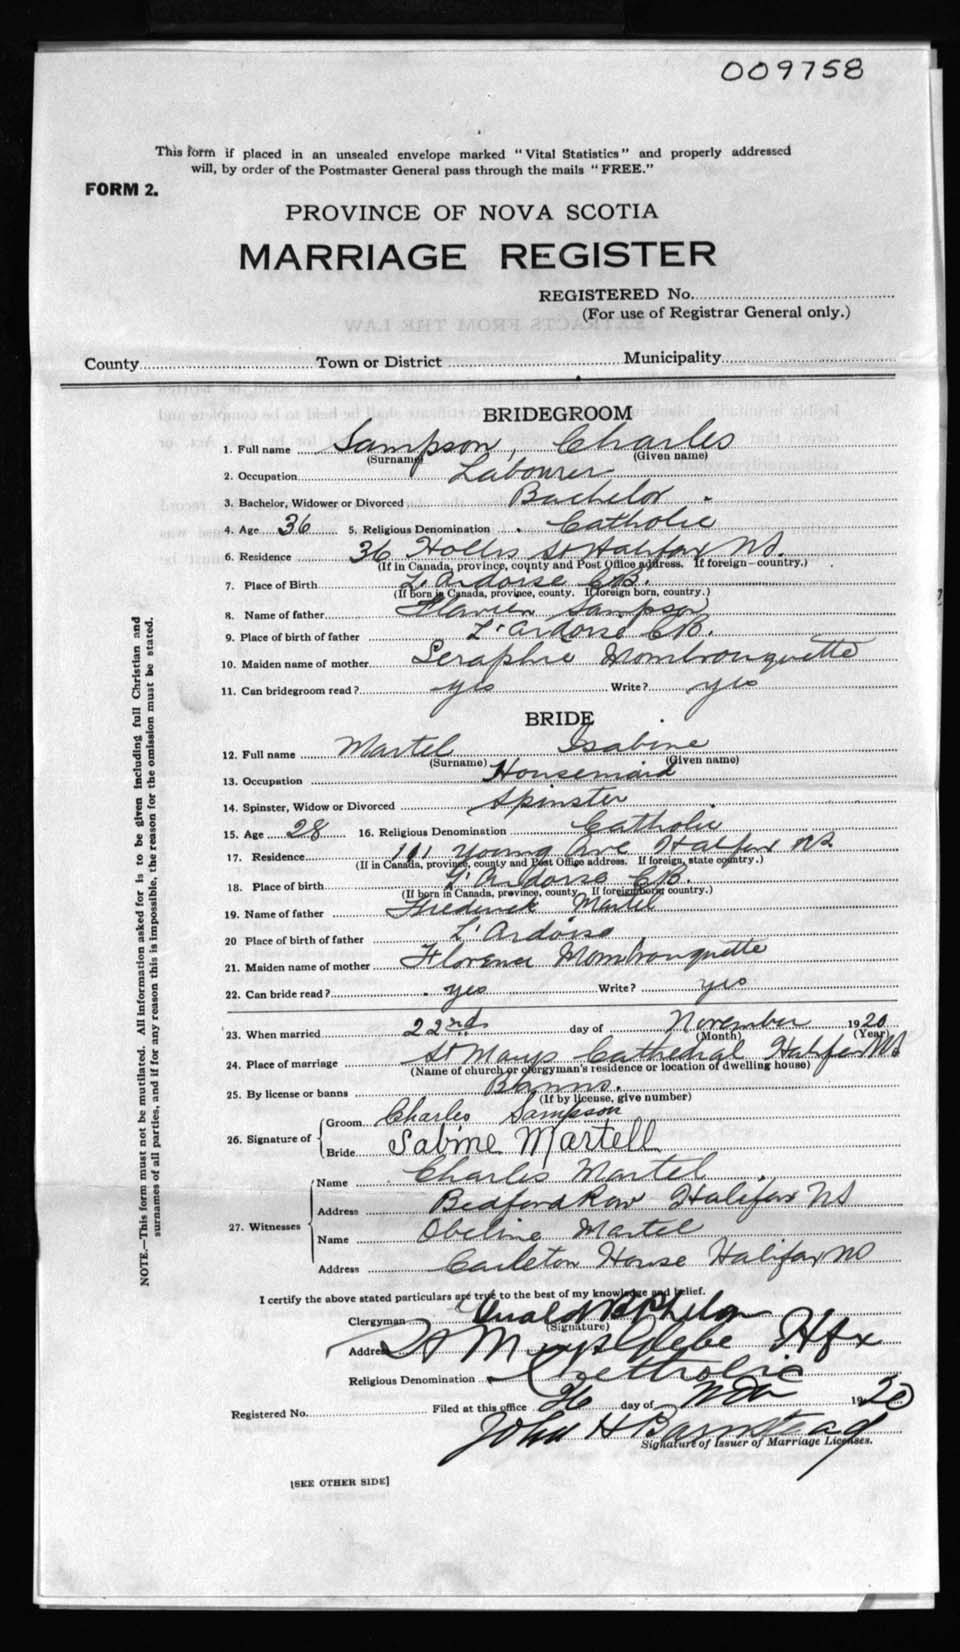 009758
This form if placed in an unsealed envelope marked "Vital Statistics" and properly addressed
will, by order of the Postmaster General pass through the mails "FREE."
FORM 2.
PROVINCE OF NOVA SCOTIA
MARRIAGE REGISTER
REGISTERED No.
(For use of Registrar General only.)
County Town or District Municipality
BRIDEGROOM
1. Full name Sampson, Charles
(Surname) (Given name)
2. Occupation Labourer
3. Bachelor, Widower or Divorced Bachelor
4. Age 36 5. Religious Denomination Catholic
6. Residence 36 Hollis St Halifax NS.
(If in Canada, province, county and Post Office address. If foreign—country.)
7. Place of Birth L'Ardoise C.B.
(If born in Canada, province, county. If foreign born, country.)
8. Name of father Flavien Sampson
9. Place of birth of father L'Ardoise C.B.
10. Maiden name of mother Seraphie Mombrouquette
11. Can bridegroom read? yes Write? yes
BRIDE
12. Full name Martel Isabine
(Surname) (Given name)
13. Occupation Housemaid
14. Spinster, Widow or Divorced Spinster
15. Age 28 16. Religious Denomination Catholic
17. Residence 101 Young Ave Halifax NS
(If in Canada, province, county and Post Office address. If foreign, state country.)
18. Place of birth L'Ardoise C.B.
(If born in Canada, province, county. If foreign born country.)
19. Name of father Frederick Martel
20 Place of birth of father L'Ardoise
21. Maiden name of mother Florence Mombrouquette
22. Can bride read? yes Write? yes
23. When married 22nd day of November 1920
(Month) (Year)
24. Place of marriage St Marys Cathedral Halifax NS
(Name of church or clergyman's residence or location of dwelling house)
25. By license or banns Banns.
(If by license, give number)
26. Signature of Groom Charles Sampson
Bride Sabine Martell
27. Witnesses Name Charles Martel
Address Bedford Row Halifax NS
Name Obeline Martel
Address Carleton House Halifax NS
I certify the above stated particulars are true to the best of my knowledge and belief.
Clergyman Gerald Phelan
(Signature)
Address St Marys Glebe Hfx
Religious Denomination Catholic
Registered No. Filed at this office 26 day of Nov 1920
John H Barnstead
Signature of Issuer of Marriage Licenses.
[SEE OTHER SIDE]
NOTE.—This form must not be mutilated. All information asked for is to be given including full Christian and
surnames of all parties, and if for any reason this is impossible, the reason for the omission must be stated.